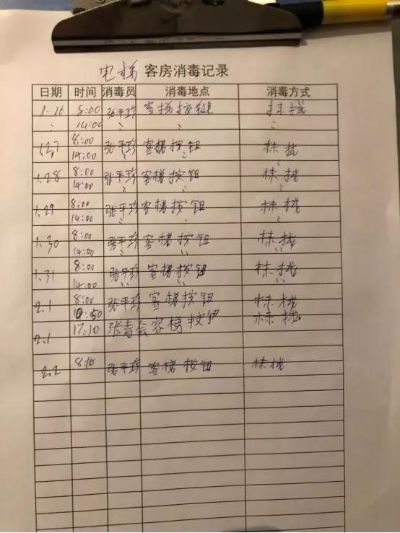 电梯 客房消毒记录
日期 时间 消毒员 消毒地点 消毒方式
8:00 张平玲 客梯按钮
14:00
1.27 8:00 张平玲 客梯按钮 抹拢
14:00
1.28 8:00 张平玲 客梯按钮 抹拢
14:00
1.29 8:00 张平玲 客梯按钮 抹拢
14:00
1.30 8:00 张平玲 客梯按钮 抹拢
14:00
1.31 8:00 张平玲 客梯按钮 抹拢
14:00
2.1 8:00 张平玲 客梯按钮 抹拢
抹拢
2.1 17:10 客梯按钮
2.2 8:10 张平玲 客梯按钮 抹拢